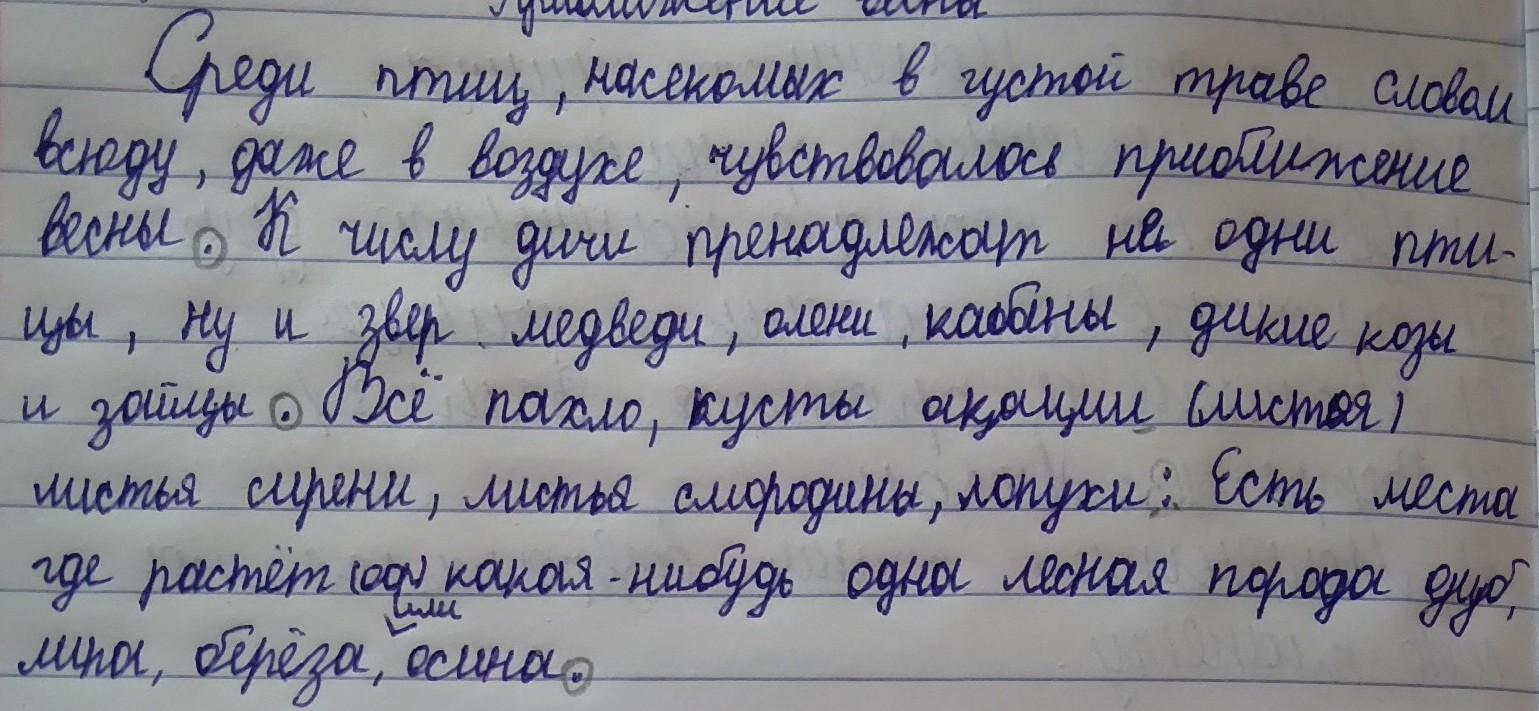 Среди птиц, насекомых в густой траве словом
всюду, даже в воздухе, чувствовалось приближение
весны. К числу дичи пренадлежат не одни пти-
цы, ну и звер медведи, олени, кабаны, дикие козы
и зайцы. Всё пахло, кусты акации (листоя)
листья сирени, листья смородины, лопухи: Есть места
где растёт (одн) какая-нибудь одна лесная порода дуб,
или
липа, берёза, осина.